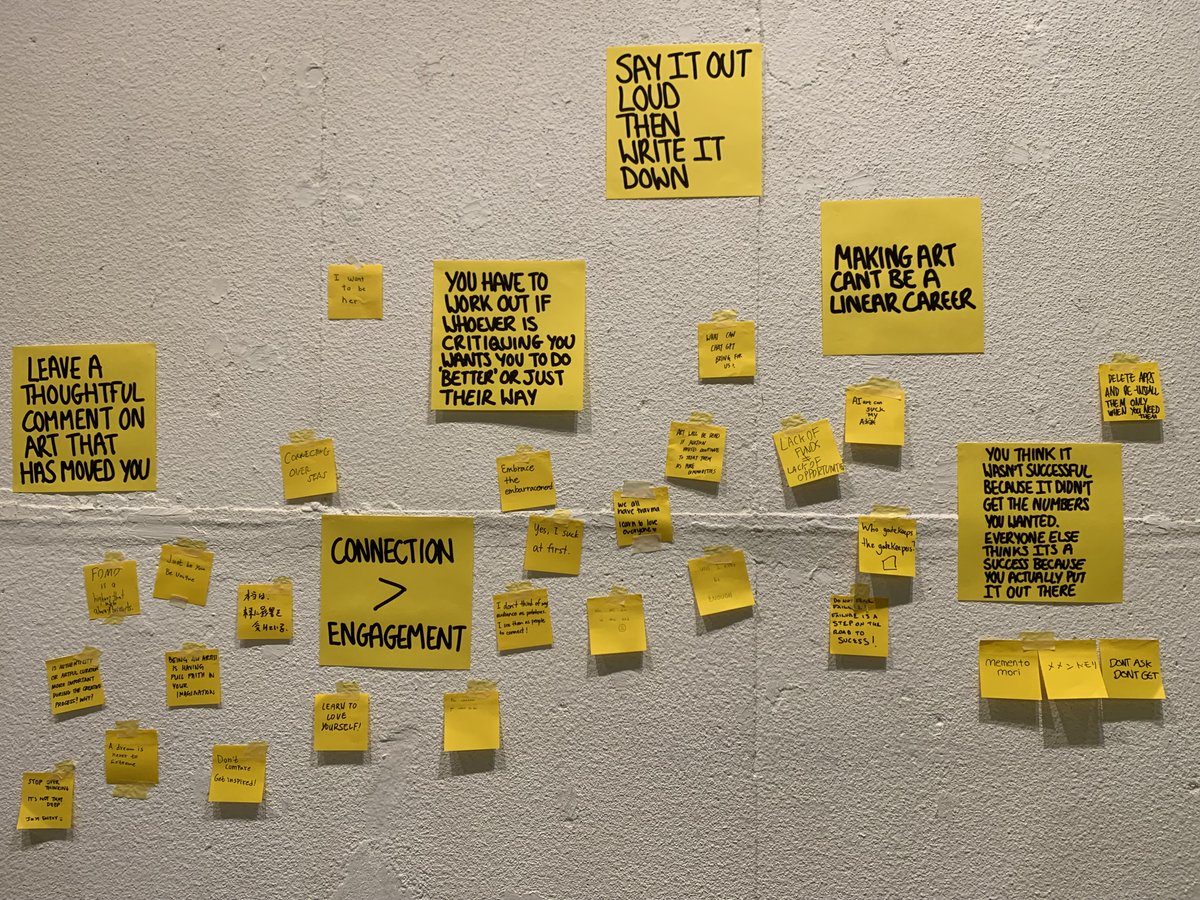 SAY IT OUT
LOUD
THEN
WRITE IT
DOWN
MAKING ART
CANT BE A
LINEAR CAREER
I want
to be
her
YOU HAVE TO
WORK OUT IF
WHOEVER IS
CRITIQUING YOU
WANTS YOU TO DO
'BETTER' OR JUST
THEIR WAY
WHAT CAN
CHAT GPT
BRING FOR
US?
LEAVE A
THOUGHTFUL
COMMENT ON
ART THAT
HAS MOVED YOU
DELETE APPS
AND RE-INSTALL
THEM ONLY
WHEN YOU NEED
THEM
AI art can
suck my
CONNECTING
OVER
SEAS
Embrace
the
embarracement
ART WILL BE DEAD
IF
CONTINUE
TO TREAT THEM
AS MERE
COMMODITIES
LACK OF
FUNDS
=
LACK OF
OPPORTUNITIES
YOU THINK IT
WASN'T SUCCESSFUL
BECAUSE IT DIDN'T
GET THE NUMBERS
YOU WANTED.
EVERYONE ELSE
THINKS ITS A
SUCCESS BECAUSE
YOU ACTUALLY PUT
IT OUT THERE
we all
have trauma
learn to love
everyone
Yes, I suck
at first.
CONNECTION
>
ENGAGEMENT
Who gatekeeps
the gatekeepers?
FOMO
is a
that
Just be you
Be Unique
I don't think of my
audience as potatoes.
I see them as people
to connect!
ENOUGH
FAILURE IS A
STEP ON THE
ROAD TO
SUCCESS!
IS AUTHENTICITY
OR ARTFUL CURATION
MORE IMPORTANT
DURING THE CREATIVE
PROCESS? WHY?
BEING AN ARTIST
IS HAVING
FULL FAITH IN
YOUR
IMAGINATION
memento
mori
DONT ASK
DONT GET
LEARN TO
LOVE
YOURSELF!
A dream is
never to
Don't
compare
Get inspired!
STOP OVER
THINKING
IT'S NOT THAT
DEEP